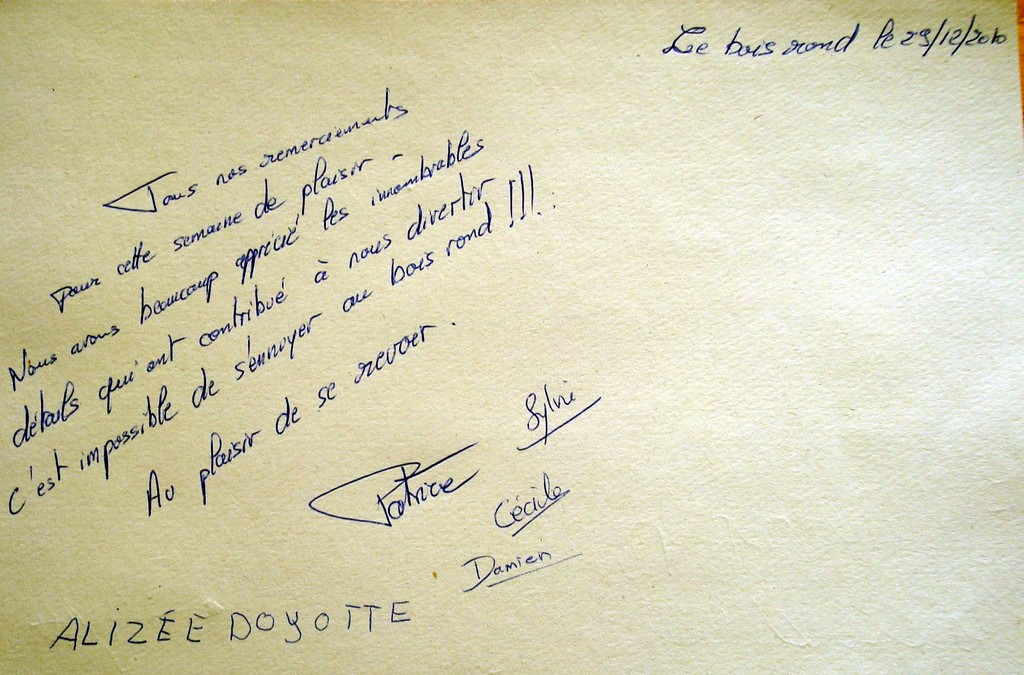 Le bois rond le 29/12/2010
Tous nos remerciements
pour cette semaine de plaisir -
Nous avons beaucoup apprécié les innombrables
détails qui ont contribué à nous divertir
c'est impossible de s'ennuyer au bois rond !!! . .
Au plaisir de se revoir .
Sylvie
Patrice
Cécile
Damien
ALIZÉE DOYOTTE